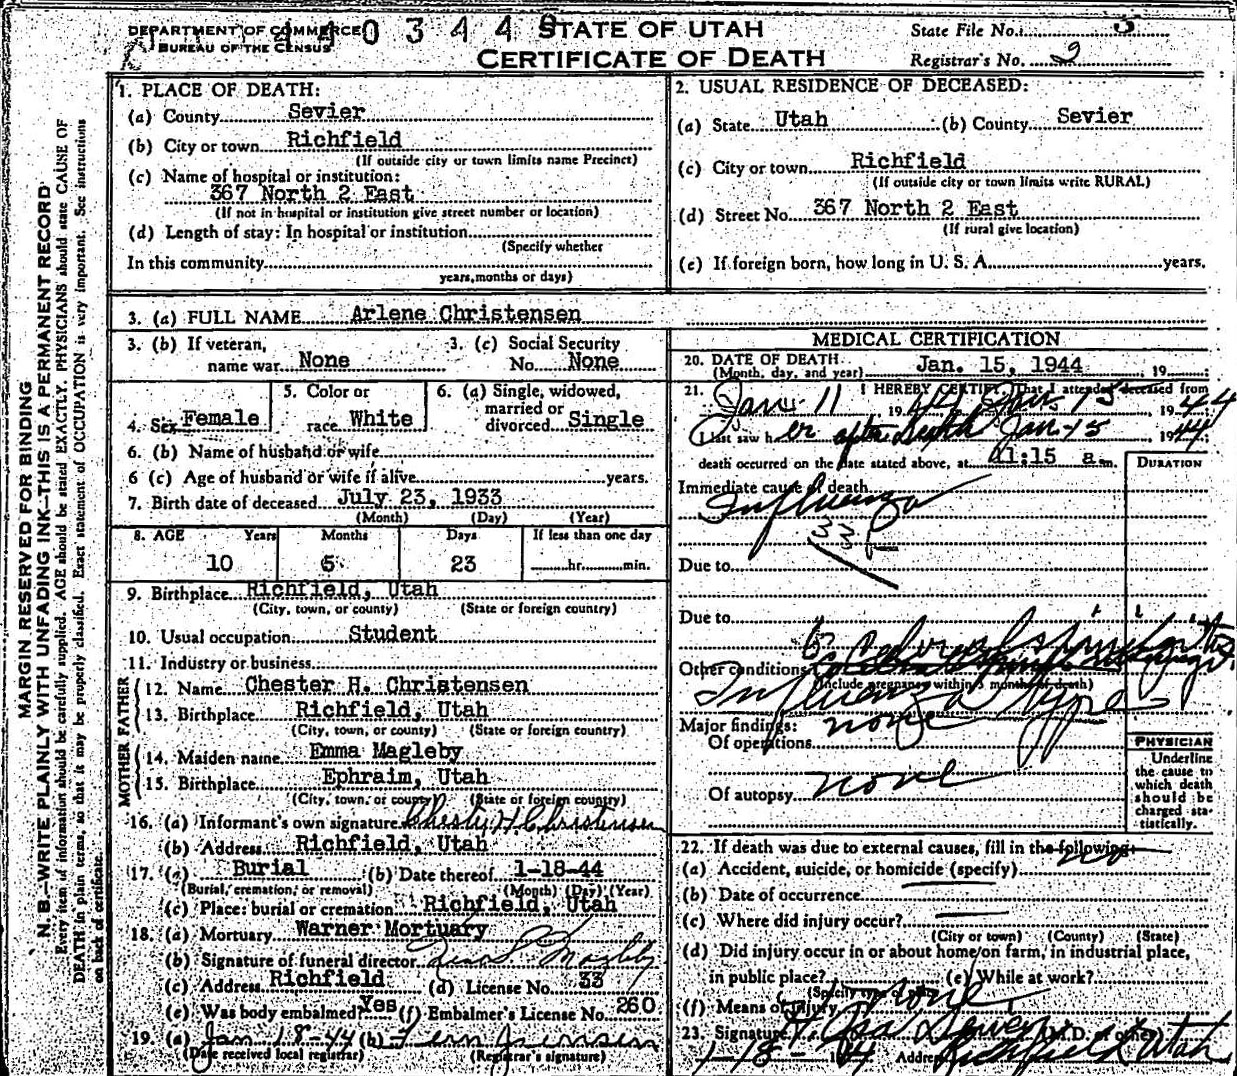 DEPARTMENT OF COMMERCE
BUREAU OF THE CENSUS
STATE OF UTAH
CERTIFICATE OF DEATH
State File No. 3
Registrar's No. 2
MARGIN RESERVED FOR BINDING
N. B.—WRITE PLAINLY WITH UNFADING INK—THIS IS A PERMANENT RECORD
Every item of information should be carefully supplied. AGE should be stated EXACTLY. PHYSICIANS should state CAUSE OF
DEATH in plain terms, so that it may be properly classified. Exact statement of OCCUPATION is very important. See instructions
on back of certificate.
1. PLACE OF DEATH:
(a) County Sevier
(b) City or town Richfield
(If outside city or town limits name Precinct)
(c) Name of hospital or institution:
367 North 2 East
(If not in hospital or institution give street number or location)
(d) Length of stay: In hospital or institution
(Specify whether
In this community
years, months or days)
2. USUAL RESIDENCE OF DECEASED:
(a) State Utah (b) County Sevier
(c) City or town Richfield
(If outside city or town limits write RURAL)
(d) Street No. 367 North 2 East
(If rural give location)
(e) If foreign born, how long in U. S. A. years.
3. (a) FULL NAME Arlene Christensen
3. (b) If veteran, name war None
3. (c) Social Security No. None
4. Sex Female
5. Color or race White
6. (a) Single, widowed, married or divorced Single
6. (b) Name of husband or wife
6 (c) Age of husband or wife if alive years.
7. Birth date of deceased July 23, 1933
(Month) (Day) (Year)
8. AGE Years Months Days If less than one day
10 5 23 hr. min.
9. Birthplace Richfield, Utah
(City, town, or county) (State or foreign country)
10. Usual occupation Student
11. Industry or business
FATHER
12. Name Chester H. Christensen
13. Birthplace Richfield, Utah
(City, town, or county) (State or foreign country)
MOTHER
14. Maiden name Emma Magleby
15. Birthplace Ephraim, Utah
(City, town, or county) (State or foreign country)
16. (a) Informant's own signature Chester H Christensen
(b) Address Richfield, Utah
17. (a) Burial (b) Date thereof 1-18-44
(Burial, cremation, or removal) (Month) (Day) (Year)
(c) Place: burial or cremation Richfield, Utah
18. (a) Mortuary Warner Mortuary
(b) Signature of funeral director Magleby
(c) Address Richfield (d) License No. 33
(e) Was body embalmed? Yes (f) Embalmer's License No. 260
19. (a) Jan 18-44 (b) Fern Jensen
(Date received local registrar) (Registrar's signature)
MEDICAL CERTIFICATION
20. DATE OF DEATH (Month, day, and year) Jan. 15, 1944 19
21. I HEREBY CERTIFY That I attended deceased from
Jan 11 1944 Jan 15 1944
I last saw her after death Jan 15 1944
death occurred on the date stated above, at 11:15 a m.
DURATION
Immediate cause of death
Influenza
33
Due to
Due to
Other conditions
(Include pregnancy within 3 months of death)
Influenza type
Major findings:
Of operations none
Of autopsy none
PHYSICIAN
Underline
the cause to
which death
should be
charged sta-
tistically.
22. If death was due to external causes, fill in the following: no
(a) Accident, suicide, or homicide (specify)
(b) Date of occurrence
(c) Where did injury occur?
(City or town) (County) (State)
(d) Did injury occur in or about home, on farm, in industrial place,
in public place? (e) While at work?
(Specify type of place)
(f) Means of injury none
23. Signature Asa Dewey (M.D. or other)
Address Richfield Utah